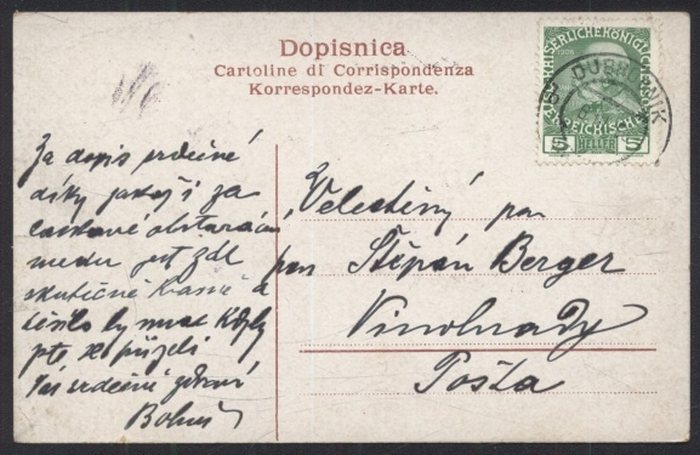 Dopisnica
Cartoline di Corrispondenza
Korrespondez-Karte.
KAISERLICHEKÖNIGLICHE
ÖSTERREICHISCHE
1908
5 HELLER 5
DUBROVNIK
Za dopis srdečné
díky jakož i za
laskavé obstarání
medu jest zde
skutečně krásně a
těšilo by mne kdyby
pte se přijeli
Vás srdečně zdraví
Bohuš
Veledůstý pan
pan Štěpán Berger
Vinohrady
Pošta